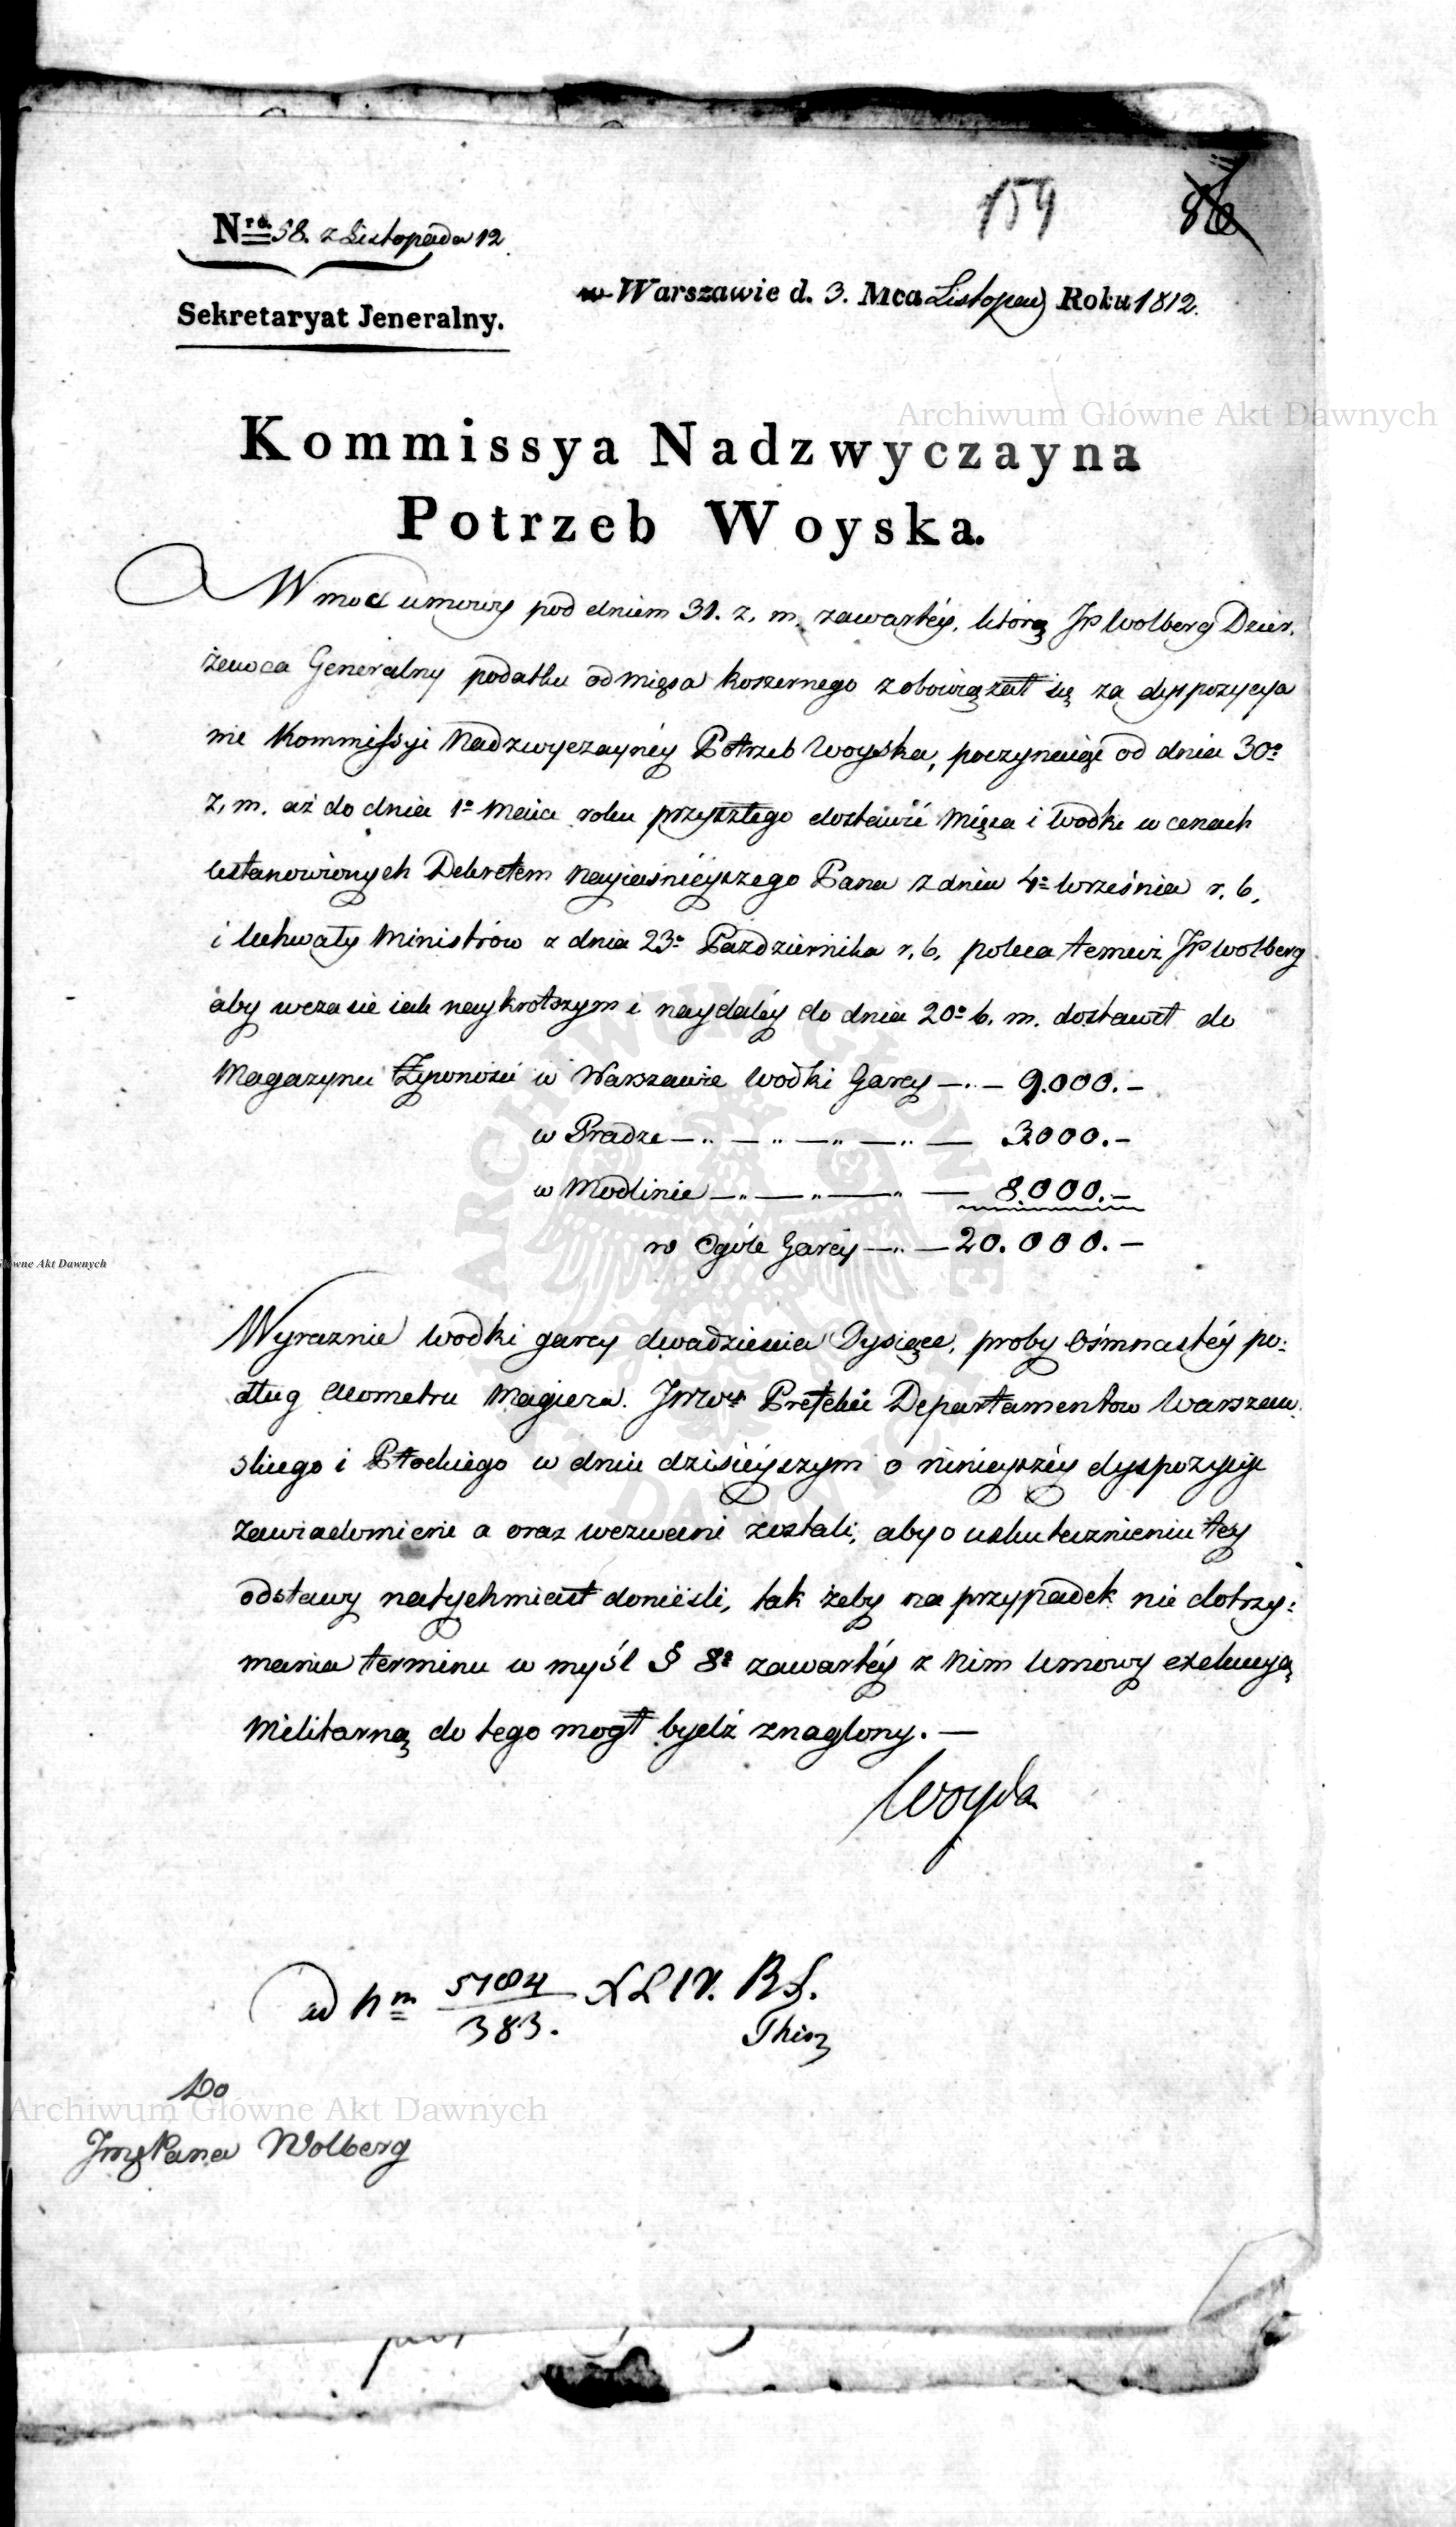 159 86
Nro. 58. z Listopada 12
Sekretaryat Jeneralny.
w Warszawie d. 3. Mca Listopad Roku 1812.
Archiwum Główne Akt Dawnych
Kommissya Nadzwyczayna
Potrzeb Woyska.
W moc umowy pod dniem 31. z. m. zawartéy, którą JP Wolberg Dzier,
żawca Generalny podatku od mięsa koszernego zobowiązał się za dyspozycya
mi Kommissyi Nadzwyczaynéy Potrzeb Woyska, poczynaiąc od dnia 30o
z. m. aż do dnia 1o Maia roku przyszłego dostawić Mięsa i Wodki w cenach
ustanowionych Dekretem Nayiaśnieyszego Pana z dnia 4o Września r. b.
i Uchwały Ministrów z dnia 23o Pazdziernika r. b. poleca temuż JP Wolberg
aby w czasie iak naykrotszym i naydaléy do dnia 20o b. m. dostawił do
Magazynu Żywności w Warszawie Wodki Garcy —.— 9.000.—
w Pradze — „ — „ — „ — „ — 3000.—
w Modlinie — „ — „ — „ — 8.000.—
w Ogóle Garcy — „ — 20.000.—
Główne Akt Dawnych
Wyraznie Wodki garcy dwadzieścia Tysięcy, proby Ośmnastéy po:
dług Areometru Magiera. JWW Prefekci Departamentow Warszaw.
skiego i Płockiego w dniu dzisieyszym o ninieyszéy dyspozycyi
zawiadomieni a oraz wezwani zostali, aby o uskutecznieniu tey
odstawy natychmiast donieśli, tak żeby na przypadek nie dotrzy:
mania terminu w myśl § 8o zawartéy z Nim Umowy exekucyą
Militarną do tego mogł bydź znaglony. —
Woyda
ad Nm 5184/383. XLIV. B.S.
Do
Archiwum Główne Akt Dawnych
Jmć Pana Wolberg
ARCHIWUM GŁÓWNE AKT DAWNYCH